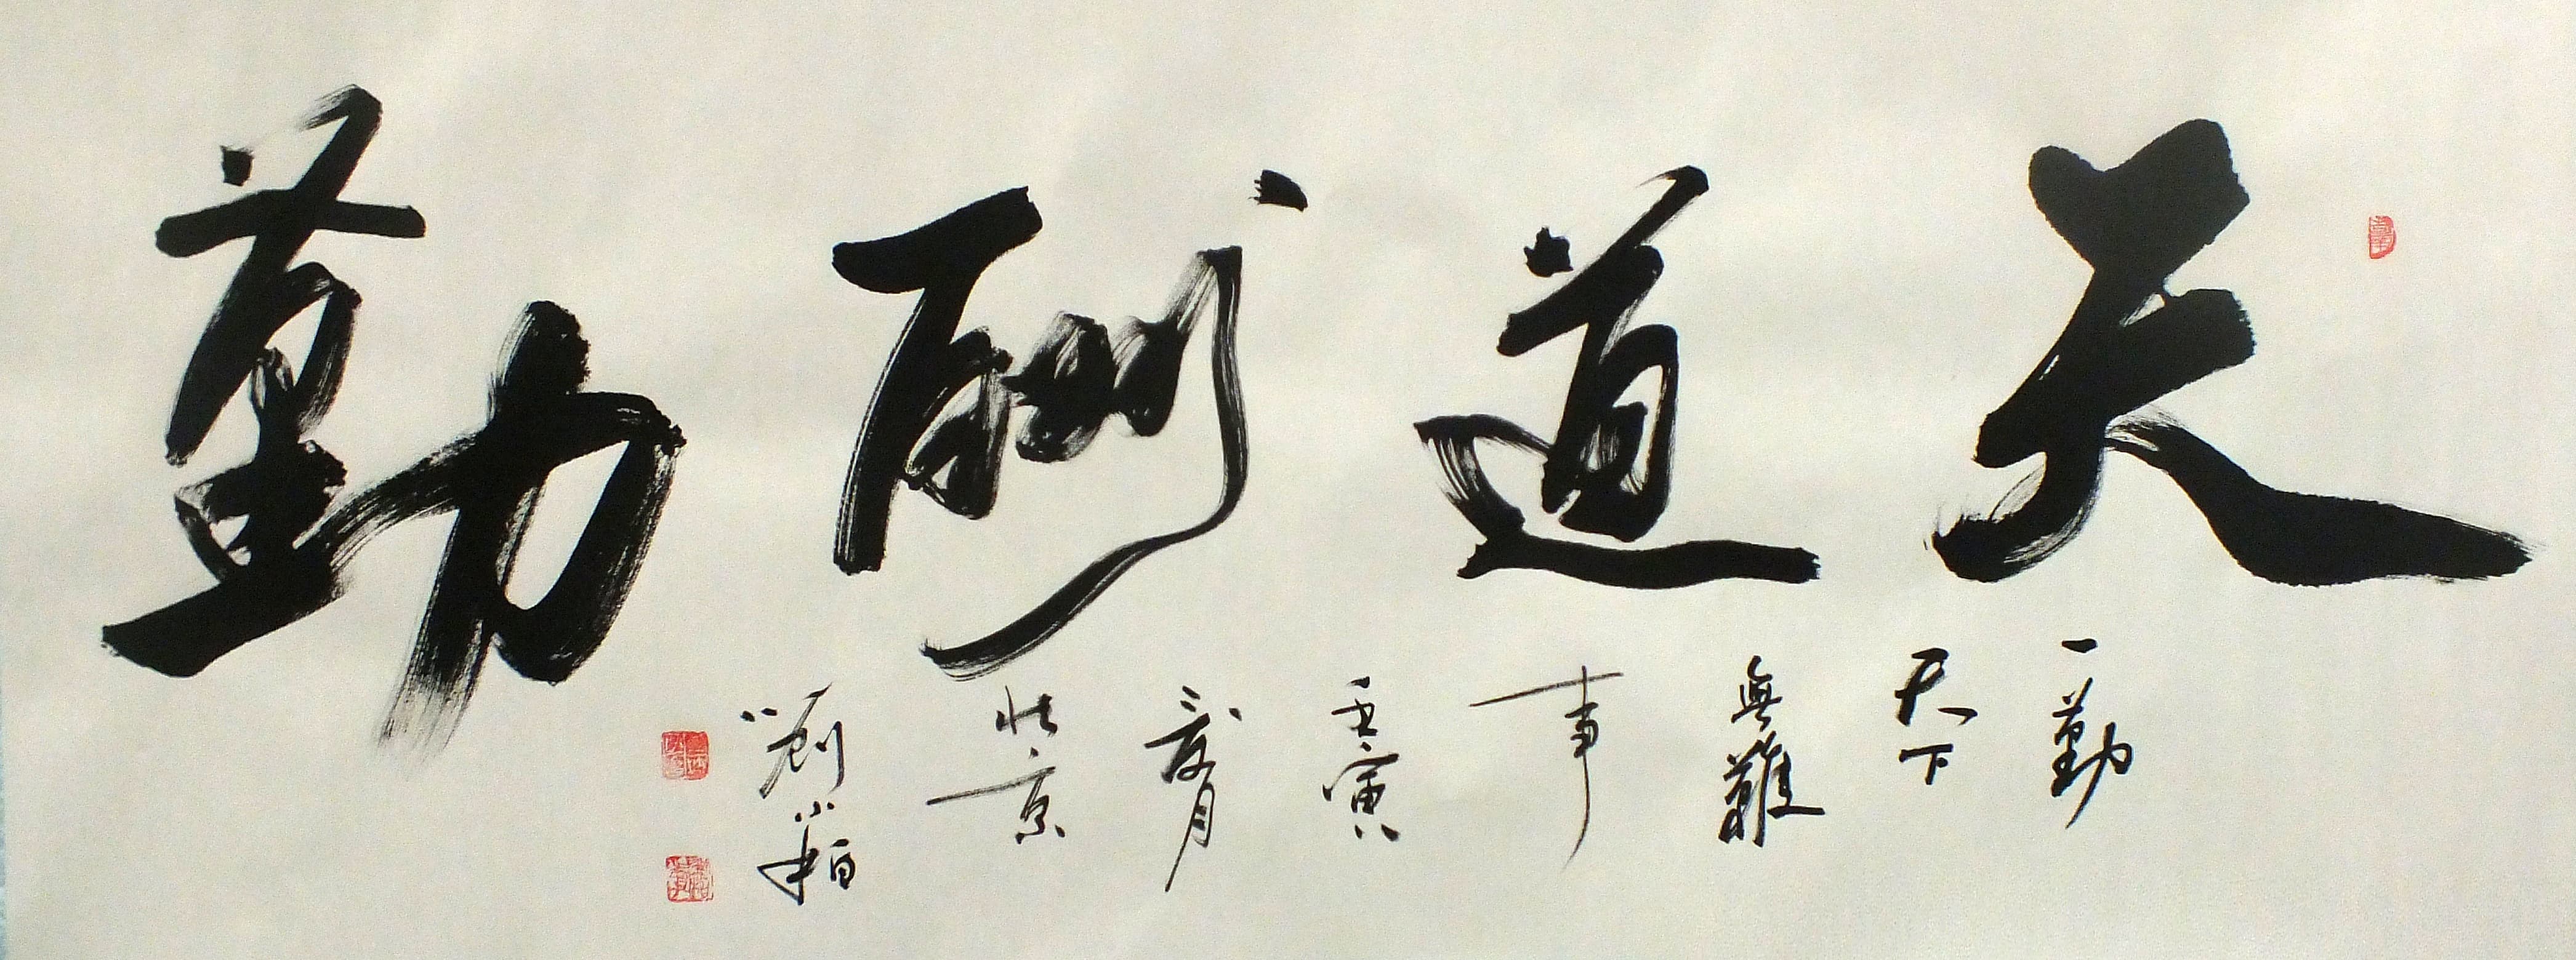 天道酬勤
一勤
天下
無難
事
壬寅
荔月
北京
劉小